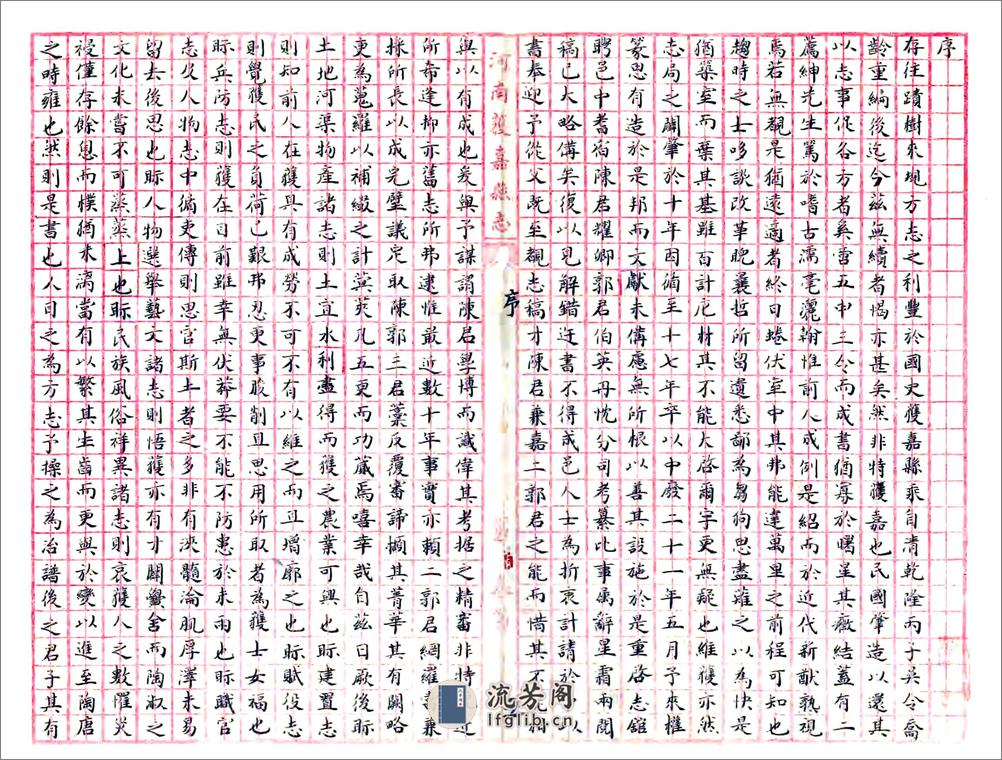 序
存往蹟樹來規方志之利豐於國史獲嘉縣乘自清乾隆丙子吳令喬
齡重編後迄今茲無續者愒亦甚矣然非特獲嘉也民國肇造以還其
以志事促各方者奚啻五申三令而成書猶寡於曙星其厥結蓋有二
薦紳先生篤於嗜古濡毫灑翰惟前人成例是紹而於近代新猷孰視
焉若無覩是猶遠適者終日蜷伏室中其弗能達萬里之前程可知也
趨時之士哆談改革睨曩哲所留遺悉鄙為芻狗思盡薙之以為快是
猶築室而棄其基雖百計庀材其不能大啓爾宇更無疑也維獲亦然
志局之闢肇於十年因循至十七年卒以中廢二十一年五月予來權
篆思有造於是邦而文獻未備慮無所根以善其設施於是重啓志館
聘邑中耆宿陳君耀卿郭君伯英丹忱分司考纂比事屬辭星霜兩閱
稿已大略備矣復以見解錯迕書不得成邑人士為折衷計請於
以
書奉迎予從父既至覩志稿才陳君兼嘉二郭君之能而惜其不
河南獲嘉縣志
序
與以有成也爰與予謀謂陳君學博而識偉其考据之精審非特
近
所希逢抑亦舊志所弗逮惟最近數十年事實亦賴二郭君網羅
兼
採所長以成完璧議定取陳郭三君藁反覆審諦擷其菁華其有闕略
更為蒐羅以補綴之計蓂莢凡五更而功蕆焉嘻幸哉自茲日厥後眎
土地河渠物產諸志則土宜水利盡得而獲之農業可興也眎建置志
則知前人在獲具有成勞不可不有以維之而且增廓之也眎賦役志
則覺獲民之負荷已艱弗忍更事朘削且思用所取者為獲士女福也
眎兵防志則獲在目前雖幸無伏莽要不能不防患於未雨也眎職官
志及人物志中循吏傳則思官斯土者之多非有浹髓淪肌厚澤未易
留去後思也眎人物選舉藝文諸志則悟獲亦有才闢黌舍而陶淑之
文化未嘗不可蒸蒸上也眎民族風俗祥異諸志則哀獲人之數罹災
祲僅存餘息而樸猶未漓當有以繁其生齒而更與於變以進至陶唐
之時雍也然則是書也人目之為方志予操之為治譜後之君子其有
流芳阁
lfglib.cn